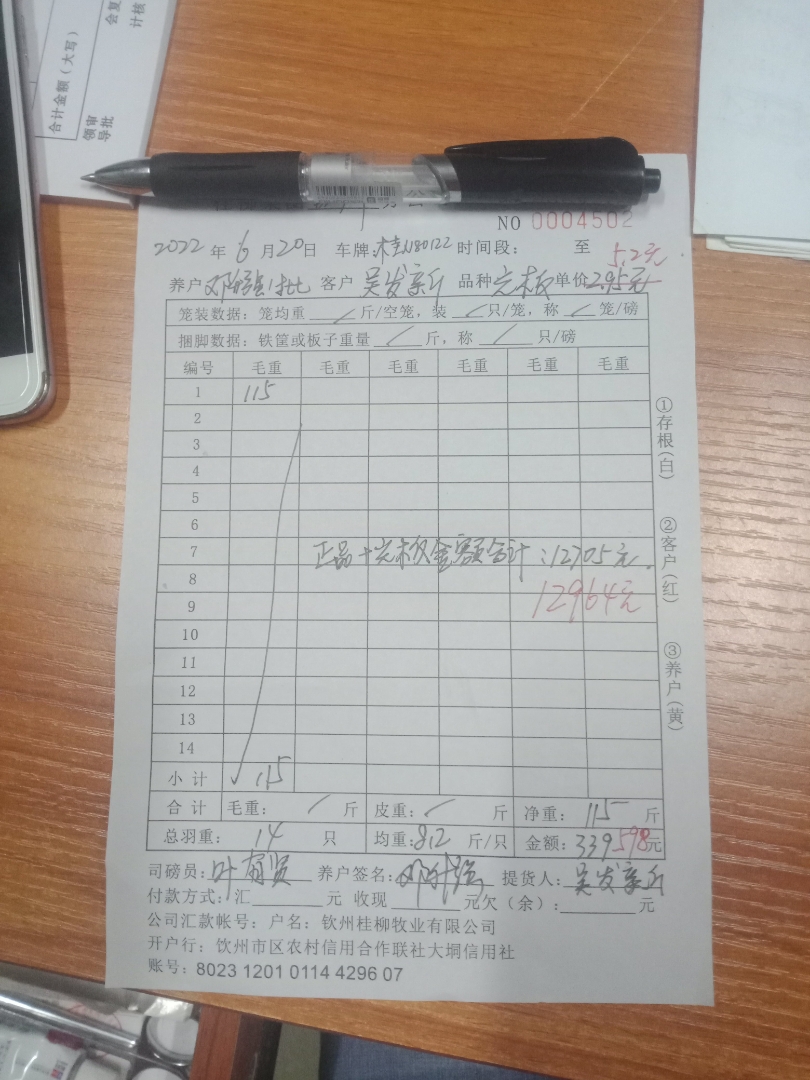 合计金额（大写）
领导
审批
会计
复核
NO 0004502
2022 年 6 月 20 日 车牌: 桂N80122 时间段: 至
5.2元
养户 客户 吴发亲 品种 光板 单价 2.95元
笼装数据: 笼均重 / 斤/空笼, 装 / 只/笼, 称 / 笼/磅
捆脚数据: 铁筐或板子重量 / 斤, 称 / 只/磅
编号 毛重 毛重 毛重 毛重 毛重 毛重
1 115
2
3
4
5
6
7 正品+光板金额合计:12705元.
8
12964元
9
10
11
12
13
14
小计 115
合计 毛重: / 斤 皮重: / 斤 净重: 115 斤
总羽重: 14 只 均重:8.2 斤/只 金额: 339 598元
司磅员: 叶有贤 养户签名: 提货人: 吴发亲
付款方式: 汇 元 收现 元欠（余）: 元
公司汇款帐号: 户名: 钦州桂柳牧业有限公司
开户行: 钦州市区农村信用合作联社大垌信用社
账号: 8023 1201 0114 4296 07
①存根(白)
②客户(红)
③养户(黄)